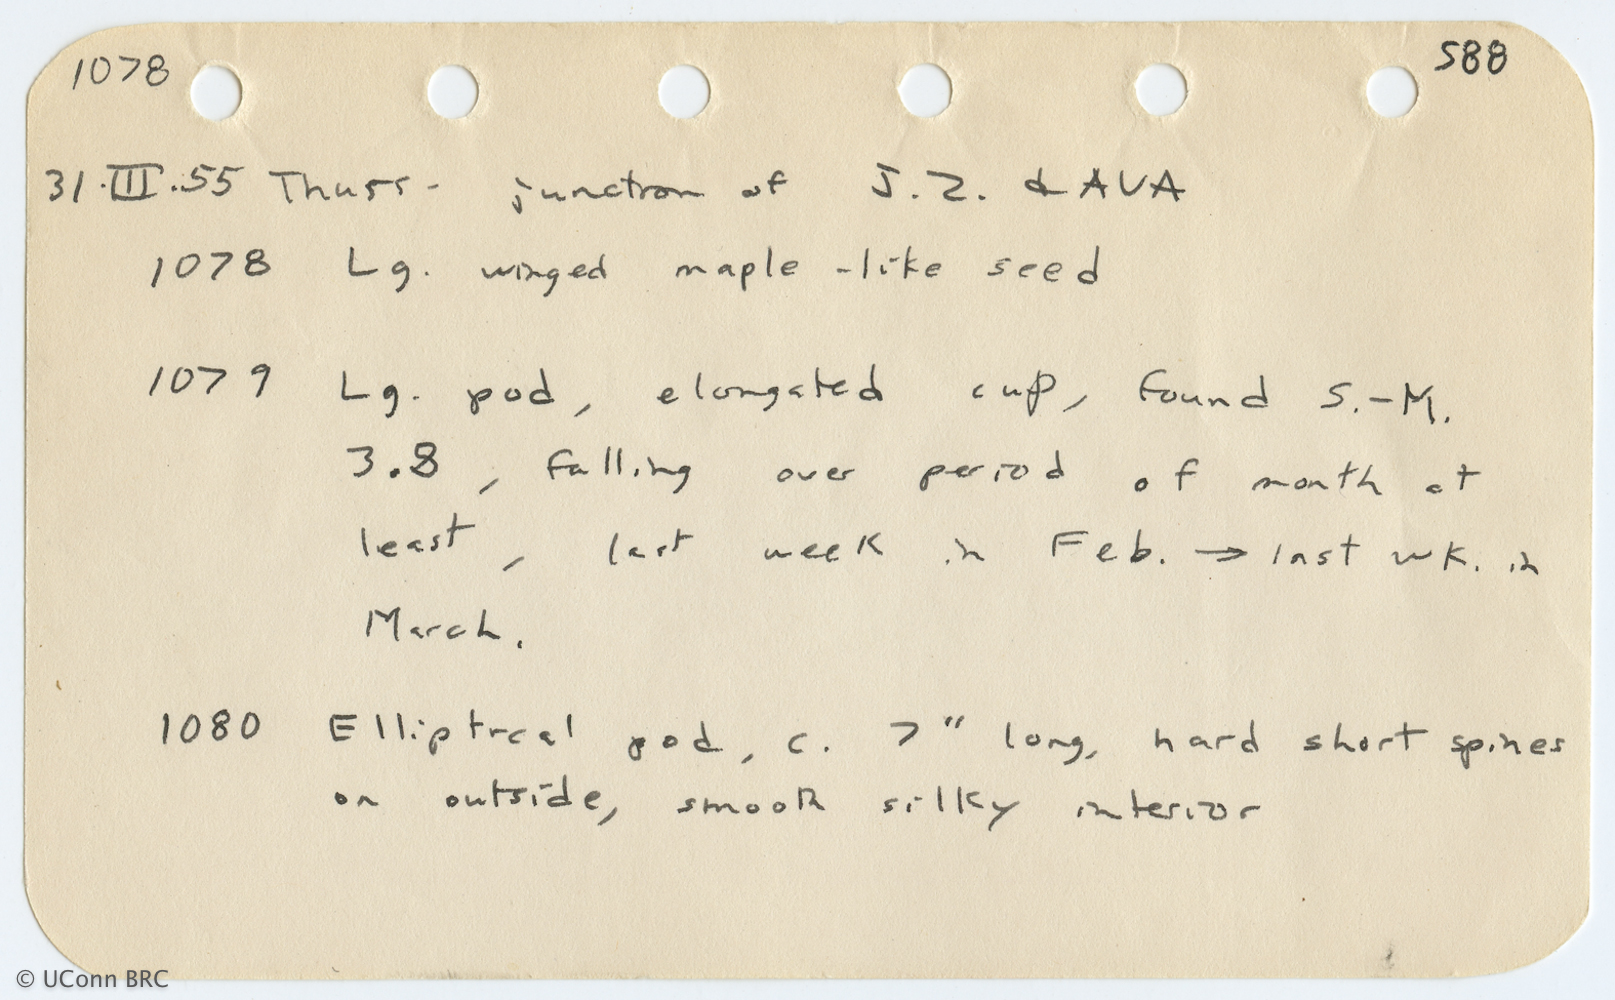 1078 588
31.III.55 Thurs- junction of J.Z. & AVA
1078 Lg. winged maple-like seed
1079 Lg. pod, elongated cup, found S.-M.
3.8, falling over period of month at
least, last week in Feb. → last wk. in
March.
1080 Elliptical pod, c. 7" long, hard short spines
on outside, smooth silky interior
© UConn BRC